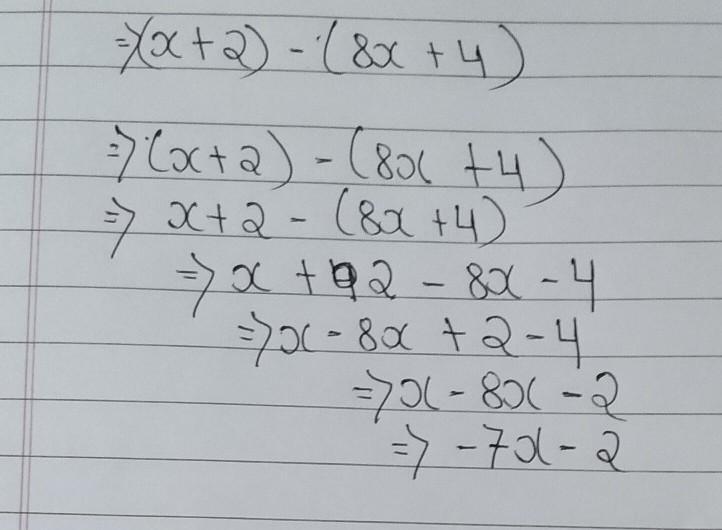 ⇒(x+2) - (8x + 4)
⇒(x+2) - (8x + 4)
⇒ x+2 - (8x+4)
⇒ x + 2 - 8x - 4
⇒ x - 8x + 2 - 4
⇒ x - 8x - 2
⇒ -7x - 2